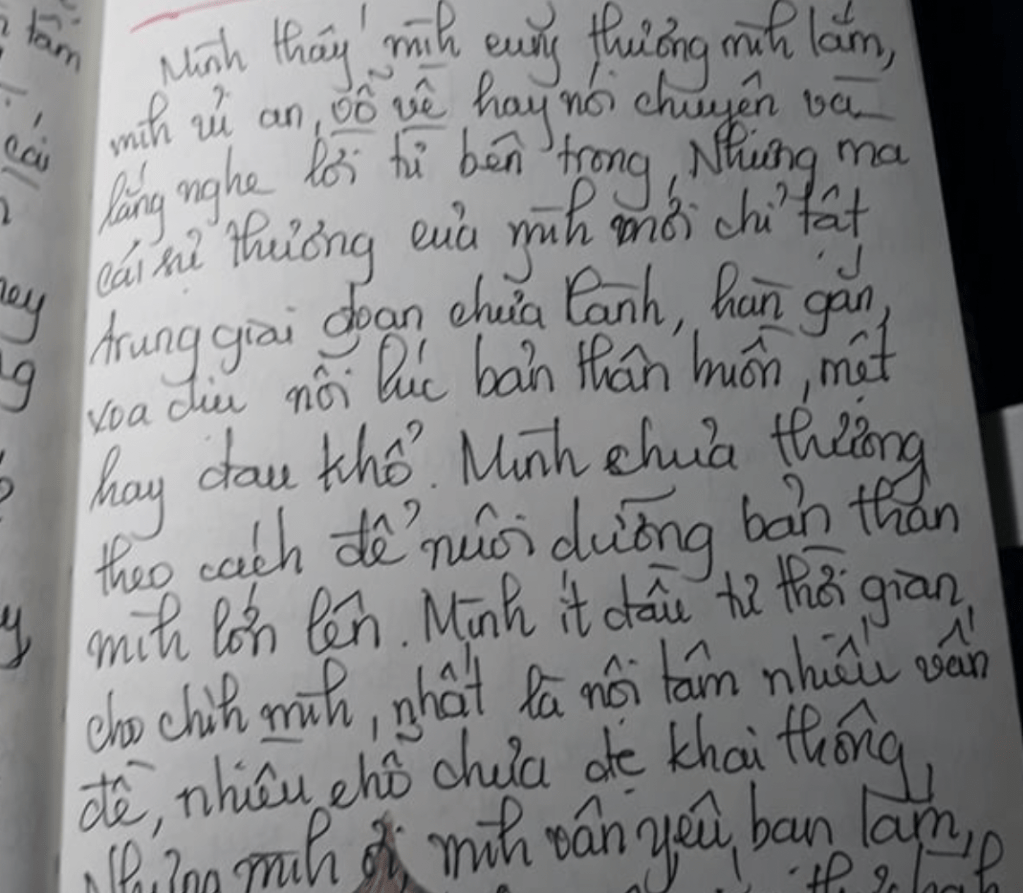 Mình thấy mình cũng thương mình lắm,
mình ủi an, vỗ về hay nói chuyện và
lắng nghe lời từ bên trong, Nhưng mà
cái sự thương của mình mới chỉ tật
trung giai đoạn chữa lành, hàn gắn,
xoa dịu nỗi lúc bản thân buồn, mệt
hay đau khổ. Mình chưa thương
theo cách để nuôi dưỡng bản thân
mình lớn lên. Mình ít đầu tư thời gian
cho chính mình, nhất là nội tâm nhiều vấn
đề, nhiều chỗ chưa đc khai thông,
Nhưng mình ơi, mình vẫn yêu bạn lắm,
tâm
cái